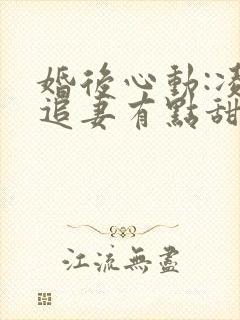 婚後心動:凌
追妻有點甜
江流無盡